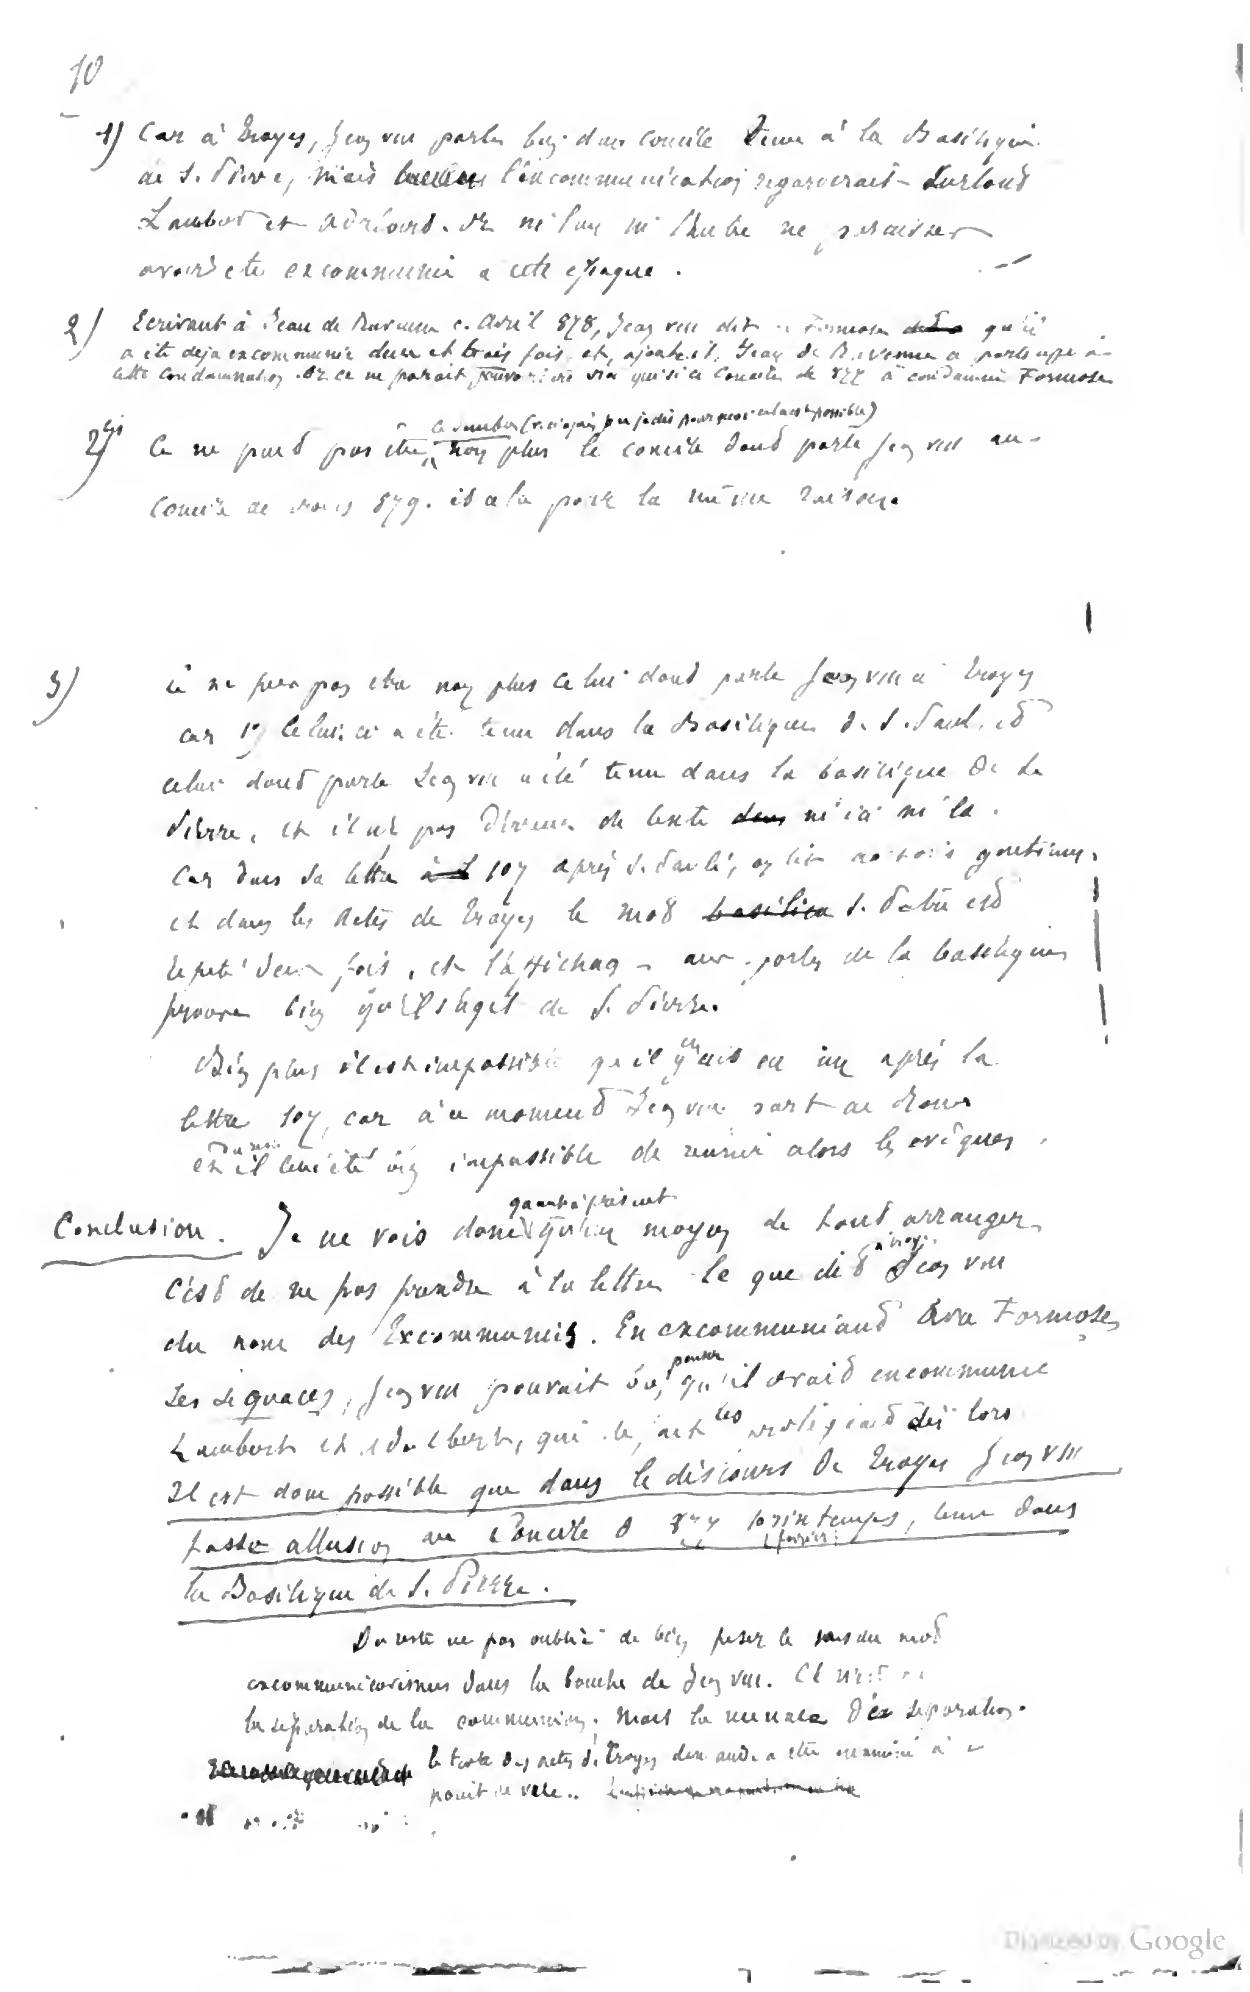 10
1) Car à Troyes, Jean VIII parle bien d'un concile tenu à la Basilique
de S. Pierre, mais l'excommunication regarderait surtout
Lambert et Adalbert. Or ni l'un ni l'autre ne paraissent
avoir été excommunié à cette époque.
2) Ecrivant à Jean de Ravenne c. Avril 878, Jean VIII dit de Formose qu'il
a été déjà excommunié deux et trois fois et, ajoute-t-il, Jean de Ravenne a participé à
cette condamnation. Or ce ne parait pouvoir être vrai que si ce Concile de 877 a condamné Formose
2bis) Ce ne peut pas être, non plus le concile dont parle Jean VIII au
concile de 879. et cela pour la même raison.
3) Ce ne peut pas être non plus celui dont parle Jean VIII à Troyes
car 1) celui-ci a été tenu dans la Basilique de S. Paul, et
celui dont parle Jean VIII a été tenu dans la basilique de S.
Pierre, et il n'y a pas d'erreur de texte ni ici ni là.
Car dans la lettre 107 après S. Pauli, on lit
et dans les Actes de Troyes le mot S. Petri est
répété deux fois, et l'affichage aux portes de la basilique
prouve bien qu'il s'agit de S. Pierre.
Bien plus il est impossible qu'il y en ait eu un après la
lettre 107, car à ce moment Jean VIII sort de Rome
et il lui eût été bien impossible de réunir alors les évêques.
Conclusion. Je ne vois donc quant à présent qu'un moyen de tout arranger
c'est de ne pas prendre à la lettre ce que dit à Troyes Jean VIII
du nom des Excommuniés. En excommuniant Formose,
ses sequaces, Jean VIII pouvait bien penser qu'il avait excommunié
Lambert et Adalbert, qui les protégeait dès lors
Il est donc possible que dans le discours de Troyes Jean VIII
fasse allusion au Concile de 877 printemps, tenu dans
la Basilique de S. Pierre.
Du reste ne pas oublier de bien peser le sens du mot
excommunicavimus dans la bouche de Jean VIII. Ce n'est pas
la séparation de la communion, mais la menace de séparation.
le texte des actes de Troyes demande a être examiné à ce
point de vue.
Digitized by Google